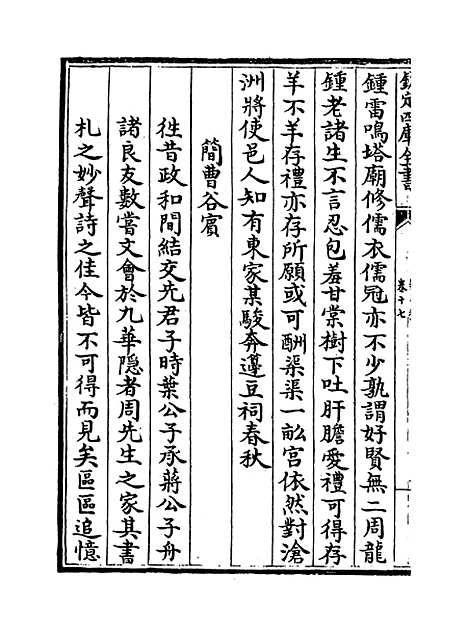 欽定四庫全書
卷十七
鍾雷鳴塔廟修儒衣儒冠亦不少孰謂好賢無二周龍
鍾老諸生不言忍包羞甘棠樹下吐肝膽愛禮可得存
羊不羊存禮亦存所願或可酬渠渠一畝宮依然對滄
洲將使邑人知有東家某駿奔籩豆祠春秋
簡曹谷賓
徃昔政和間結交先君子時葉公子承蔣公子舟
諸良友數嘗文會於九華隠者周先生之家其書
札之妙聲詩之佳今皆不可得而見矣區區追憶